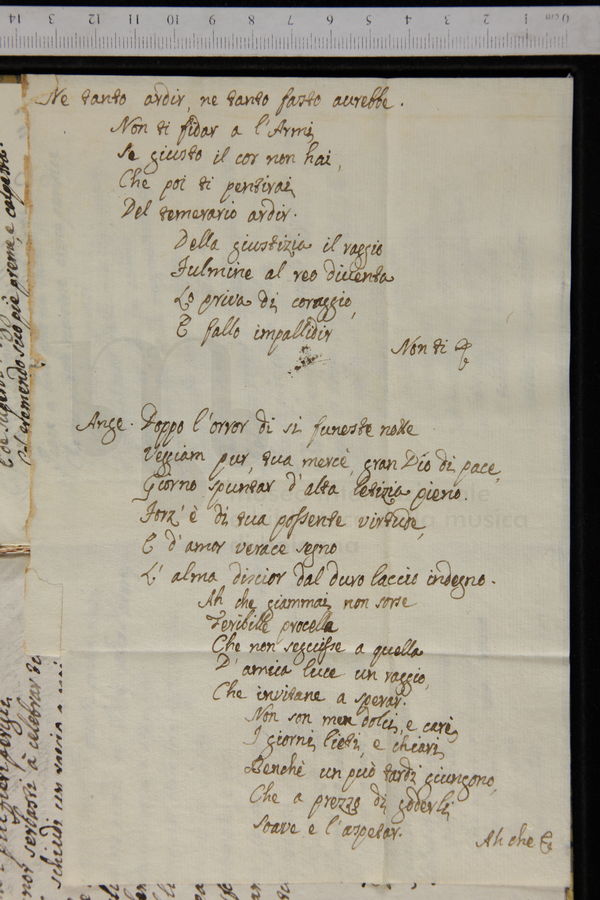 Ne tanto ardir, ne tanto fasto aurebbe.
Non ti fidar a l'Armi,
Se giusto il cor non hai,
Che poi ti pentirai
Del temerario ardir.
Della giustizia il raggio
Fulmine al reo diventa
Lo priva di coraggio,
E fallo impallidir
Non ti &
Ange. Doppo l'orror di si funeste notte
Veggiam pur, tua mercè, gran Dio di pace,
Giorno spuntar d'alta letizia pieno.
Forz' è di tua possente virtude,
E d'amor verace segno
L' alma discior dal duro laccio indegno.
Ah che giammai non sorse
Teribille procella
Che non seguisse a quella
D'amica luce un raggio,
Che invitane a sperar.
Non son men dolci, e cari,
I giorni lieti, e chiari
Benchè un può tardi giungono,
Che a prezzo di goderli
Soave e l'aspetar.
Ah che &